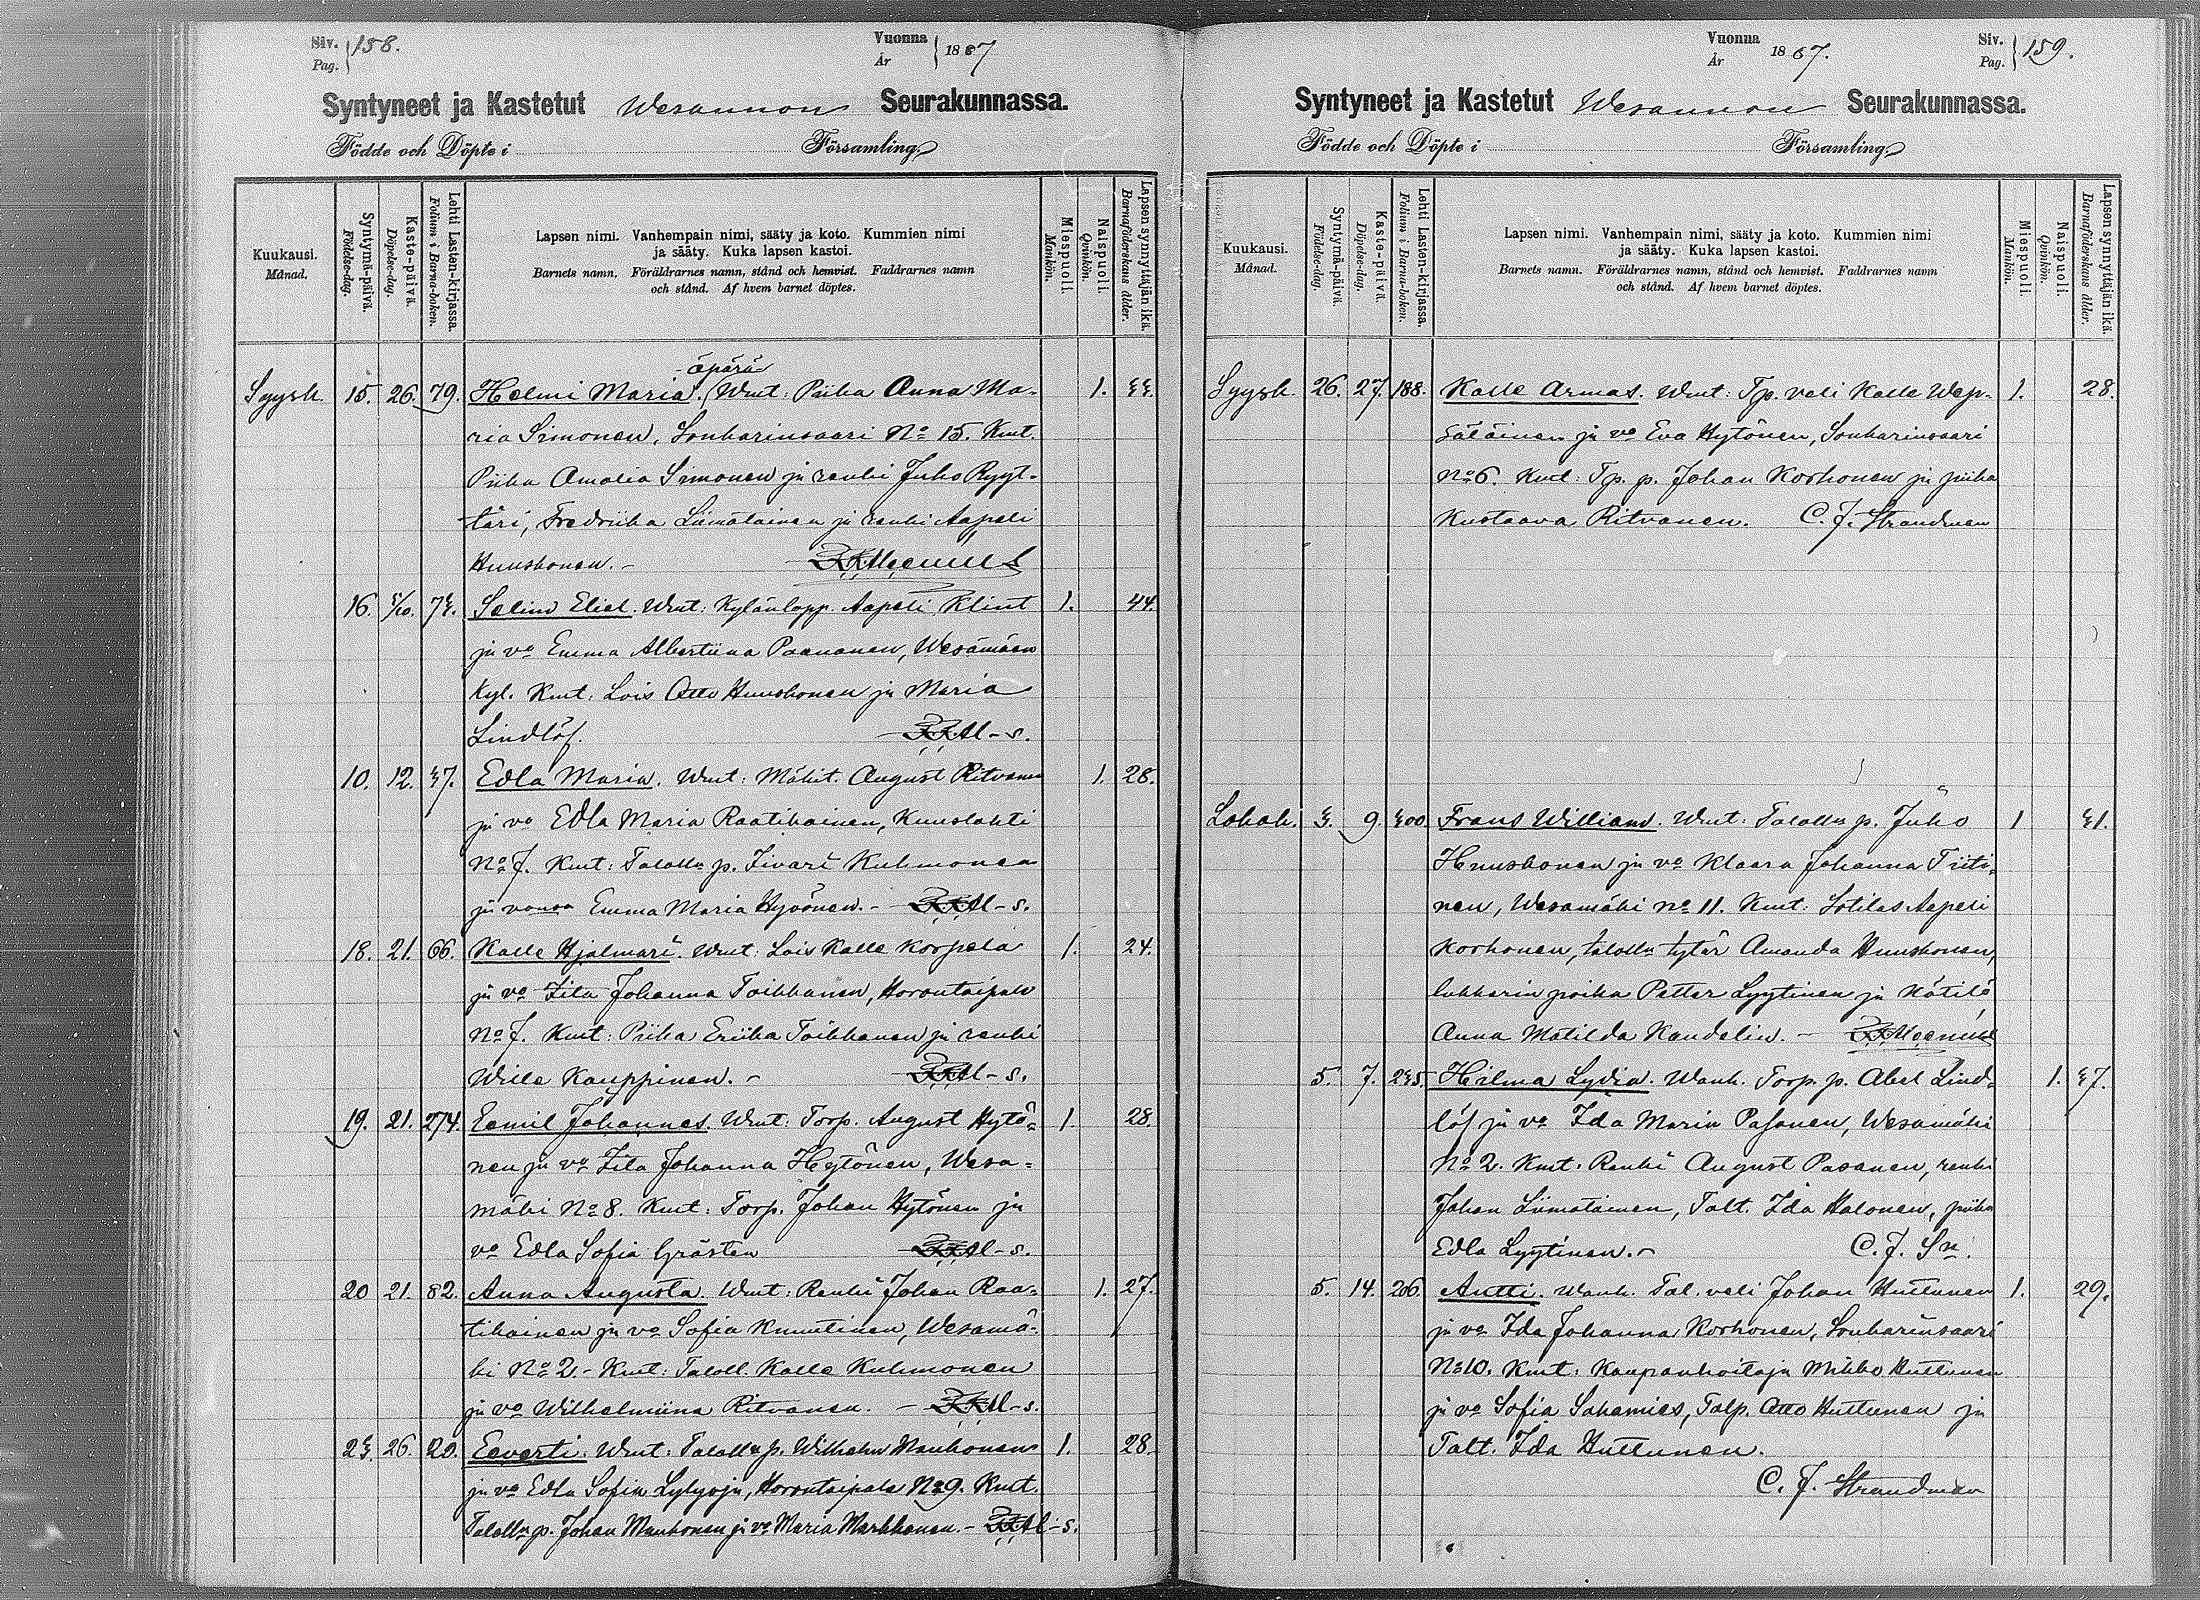 Siv. Pag. 158.
Vuonna År 1887
Syntyneet ja Kastetut Wesannon Seurakunnassa.
Födde och Döpte i Församling.
Kuukausi. Månad.
Syntymä-päivä. Födelse-dag.
Kaste-päivä. Döpelse-dag.
Lehti Lasten-kirjassa. Folium i Barna-boken.
Lapsen nimi. Vanhempain nimi, sääty ja koto. Kummien nimi
ja sääty. Kuka lapsen kastoi.
Barnets namn. Föräldrarnes namn, stånd och hemvist. Faddrarnes namn
och stånd. Af hvem barnet döptes.
Miespuoli. Mankön.
Naispuoli. Qvinkön.
Lapsen synnyttäjän ikä. Barnaföderskans ålder.
äpärä
Syysk. 15. 26. 79. Helmi Maria. Wmt: Piika Anna Ma-
ria Simonen, Sonkarinsaari No 15. Kmt.
Piika Amalia Simonen ja renki Juho Ryyt-
täri, Fredriika Liimatainen ja renki Aapeli
Huuskonen.-
16. Selim Eliel. Wmt: Kylänlapp. Aapeli Klint 1. 44.
ja vo Emma Albertiina Paananen, Wesämäen
Kyl. Kmt: Lois Otto Huuskonen ja Maria
Lindlöf.
10. 12. Edla Maria. Wmt: Mäkit. August Ritvanen 1. 28.
ja vo Edla Maria Raatikainen, Kuuslahti
No 7. Kmt: Talolln p. Iivari Kuhmonen
ja vonsa Emma Maria Hyvönen.-
18. 21. 66. Kalle Hjalmari. Wmt: Lois Kalle Korpela 1. 24.
ja vo Iita Johanna Toikkanen, Horontaipale
No 7. Kmt: Piika Eriika Toikkanen ja renki
Wille Kauppinen.-
19. 21. 274. Eemil Johannes. Wmt: Torp. August Hytö- 1. 28.
nen ja vo Iita Johanna Hytönen, Wesa-
mäki No 8. Kmt: Torp. Johan Hytönen ja
vo Edla Sofia Gråsten
20 21. 82. Anna Augusta. Wmt: Renki Johan Raa- 1. 27.
tikainen ja vo Sofia Knuutinen, Wesamä-
ki No 2.- Kmt: Taloll. Kalle Kuhmonen
ja vo Wilhelmiina Ritvanen.-
26. 20. Eeverti. Wmt: Talolln p. Wilhelm Manhonen 1. 28
ja vo Edla Sofia Lylyoja, Horontaipale No 9. Kmt.
Talolln p. Johan Manhonen ja vo Maria Markkanen.-
Vuonna År 1887.
Siv. Pag. 159.
Syntyneet ja Kastetut Wesannon Seurakunnassa.
Födde och Döpte i Församling.
Kuukausi. Månad.
Syntymä-päivä. Födelse-dag.
Kaste-päivä. Döpelse-dag.
Lehti Lasten-kirjassa. Folium i Barna-boken.
Lapsen nimi. Vanhempain nimi, sääty ja koto. Kummien nimi
ja sääty. Kuka lapsen kastoi.
Barnets namn. Föräldrarnes namn, stånd och hemvist. Faddrarnes namn
och stånd. Af hvem barnet döptes.
Miespuoli. Mankön.
Naispuoli. Qvinkön.
Lapsen synnyttäjän ikä. Barnaföderskans ålder.
Syysk. 26. 27. 188. Kalle Armas. Wmt: Tp. veli Kalle Wep- 1. 28.
säläinen ja vo Eva Hytönen, Sonkarinsaari
No 6. Kmt: Tp. p. Johan Korhonen ja piika
Kustaava Ritvanen. C. J. Strandman
Lokak. 9. Frans William. Wmt: Talolln p. Juho 1
Huuskonen ja vo Klaara Johanna Tiiti-
nen, Wesamäki No 11. Kmt: Sotilas Aapeli
Korhonen, talolln tytär Amanda Huuskonen,
lukkarin poika Petter Lyytinen ja kätilö
Anna Matilda Kandelin.-
5. 7. Hilma Lydia. Wanh. Torp. p. Abel Lind- 1.
löf ja vo Ida Maria Pasanen, Wesamäki
No 2. Kmt: Renki August Pasanen, renki
Johan Liimatainen, Talt. Ida Halonen, piika
Edla Lyytinen.- C. J. Sn.
5. 14. 206. Antti. Wanh. Tal. veli Johan Huttunen 1. 29.
ja vo Ida Johanna Korhonen, Sonkarinsaari
No 10. Kmt: Kaupanhoitaja Mikko Huttunen
ja vo Sofia Sahamies, Talp. Otto Huttunen ja
Talt. Ida Huttunen.
C. J. Strandman